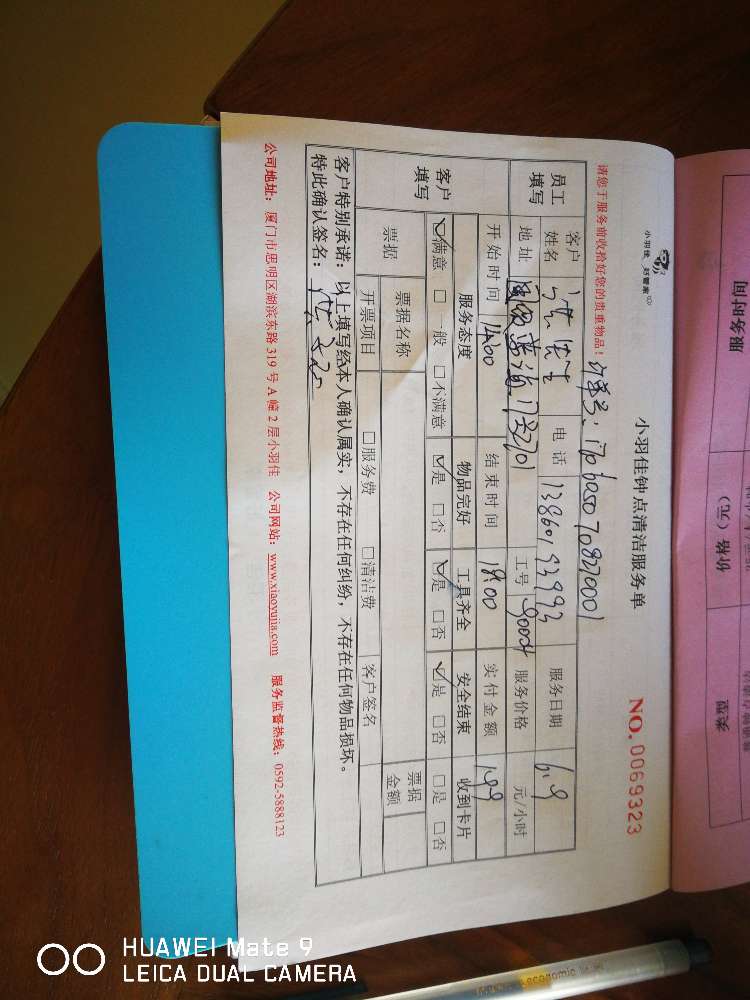 小羽佳 好管家
小羽佳钟点清洁服务单
NO.0069323
请您于服务前收拾好您的贵重物品！
员工填写 客户姓名 洪先生 电话 13860193993 服务日期 6.9
地址 工号 服务价格 元/小时
开始时间 14:00 结束时间 18:00 实付金额 199
客户填写 服务态度 物品完好 工具齐全 安全结束 收到卡片
☑满意 □一般 □不满意 ☑是 □否 ☑是 □否 ☑是 □否 □是 □否
票据 票据名称 票据金额
开票项目 □服务费 □清洁费 客户签名
客户特别承诺：以上填写经本人确认属实，不存在任何纠纷，不存在任何物品损坏。
特此确认签名：
公司地址：厦门市思明区湖滨东路319号A幢2层小羽佳 公司网站：www.xiaoyujia.com 服务监督热线：0592-5888123
服务时间
价格（元）
HUAWEI Mate 9
LEICA DUAL CAMERA